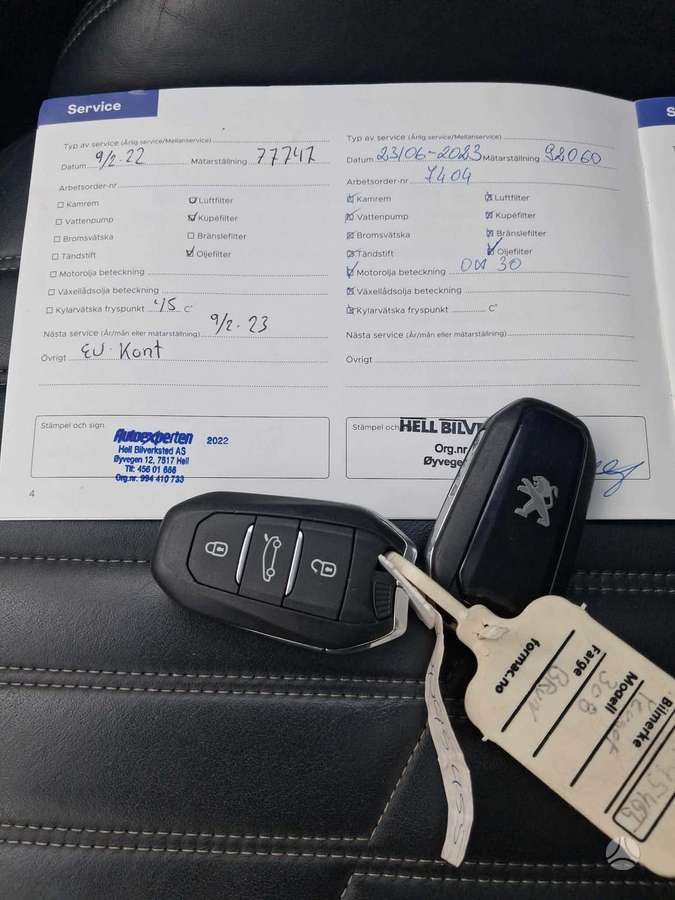 Service
Typ av service (Årlig service/Mellanservice)
Datum 9/2-22 Mätarställning 77747
Arbetsorder-nr
Kamrem Luftfilter
Vattenpump Kupéfilter
Bromsvätska Bränslefilter
Tändstift Oljefilter
Motorolja beteckning
Växellådsolja beteckning
Kylarvätska fryspunkt -45 C°
Nästa service (År/mån eller mätarställning) 9/2-23
Övrigt EU-Kont
Stämpel och sign.
Autoexperten 2022
Hell Bilverksted AS
Øyvegen 12, 7517 Hell
Tlf: 456 01 666
Org.nr. 994 410 733
4
Typ av service (Årlig service/Mellanservice)
Datum 23/06-2023 Mätarställning 92060
Arbetsorder-nr 7404
Kamrem Luftfilter
Vattenpump Kupéfilter
Bromsvätska Bränslefilter
Tändstift Oljefilter
Motorolja beteckning 0W 30
Växellådsolja beteckning
Kylarvätska fryspunkt C°
Nästa service (År/mån eller mätarställning)
Övrigt
Stämpel och
HELL BILV
Org.nr
Øyveg
S
Bilmerke
Modell 308
Farge BRUN
formac.no